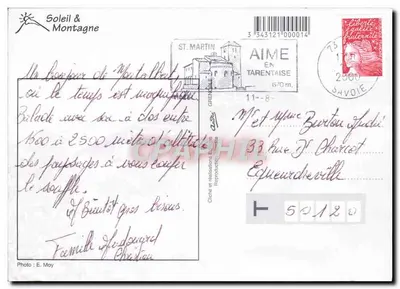 Soleil &
Montagne
3 343121 000014
ST. MARTIN
AIME
EN
TARENTAISE
11-8-
73
2000
SAVOIE
liberté
égalité
fraternité
Un bonjour de Montalbert
où le temps est magnifique
Balade sac à dos entre
1500 à 2500 mètres d'altitude
des paysages à vous couper
le souffle.
à Bientôt gros bisous.
Famille
Christian
M et Mme Berton André
33 Rue Dr Charcot
Equeurdreville
T 50120
Photo : E. May